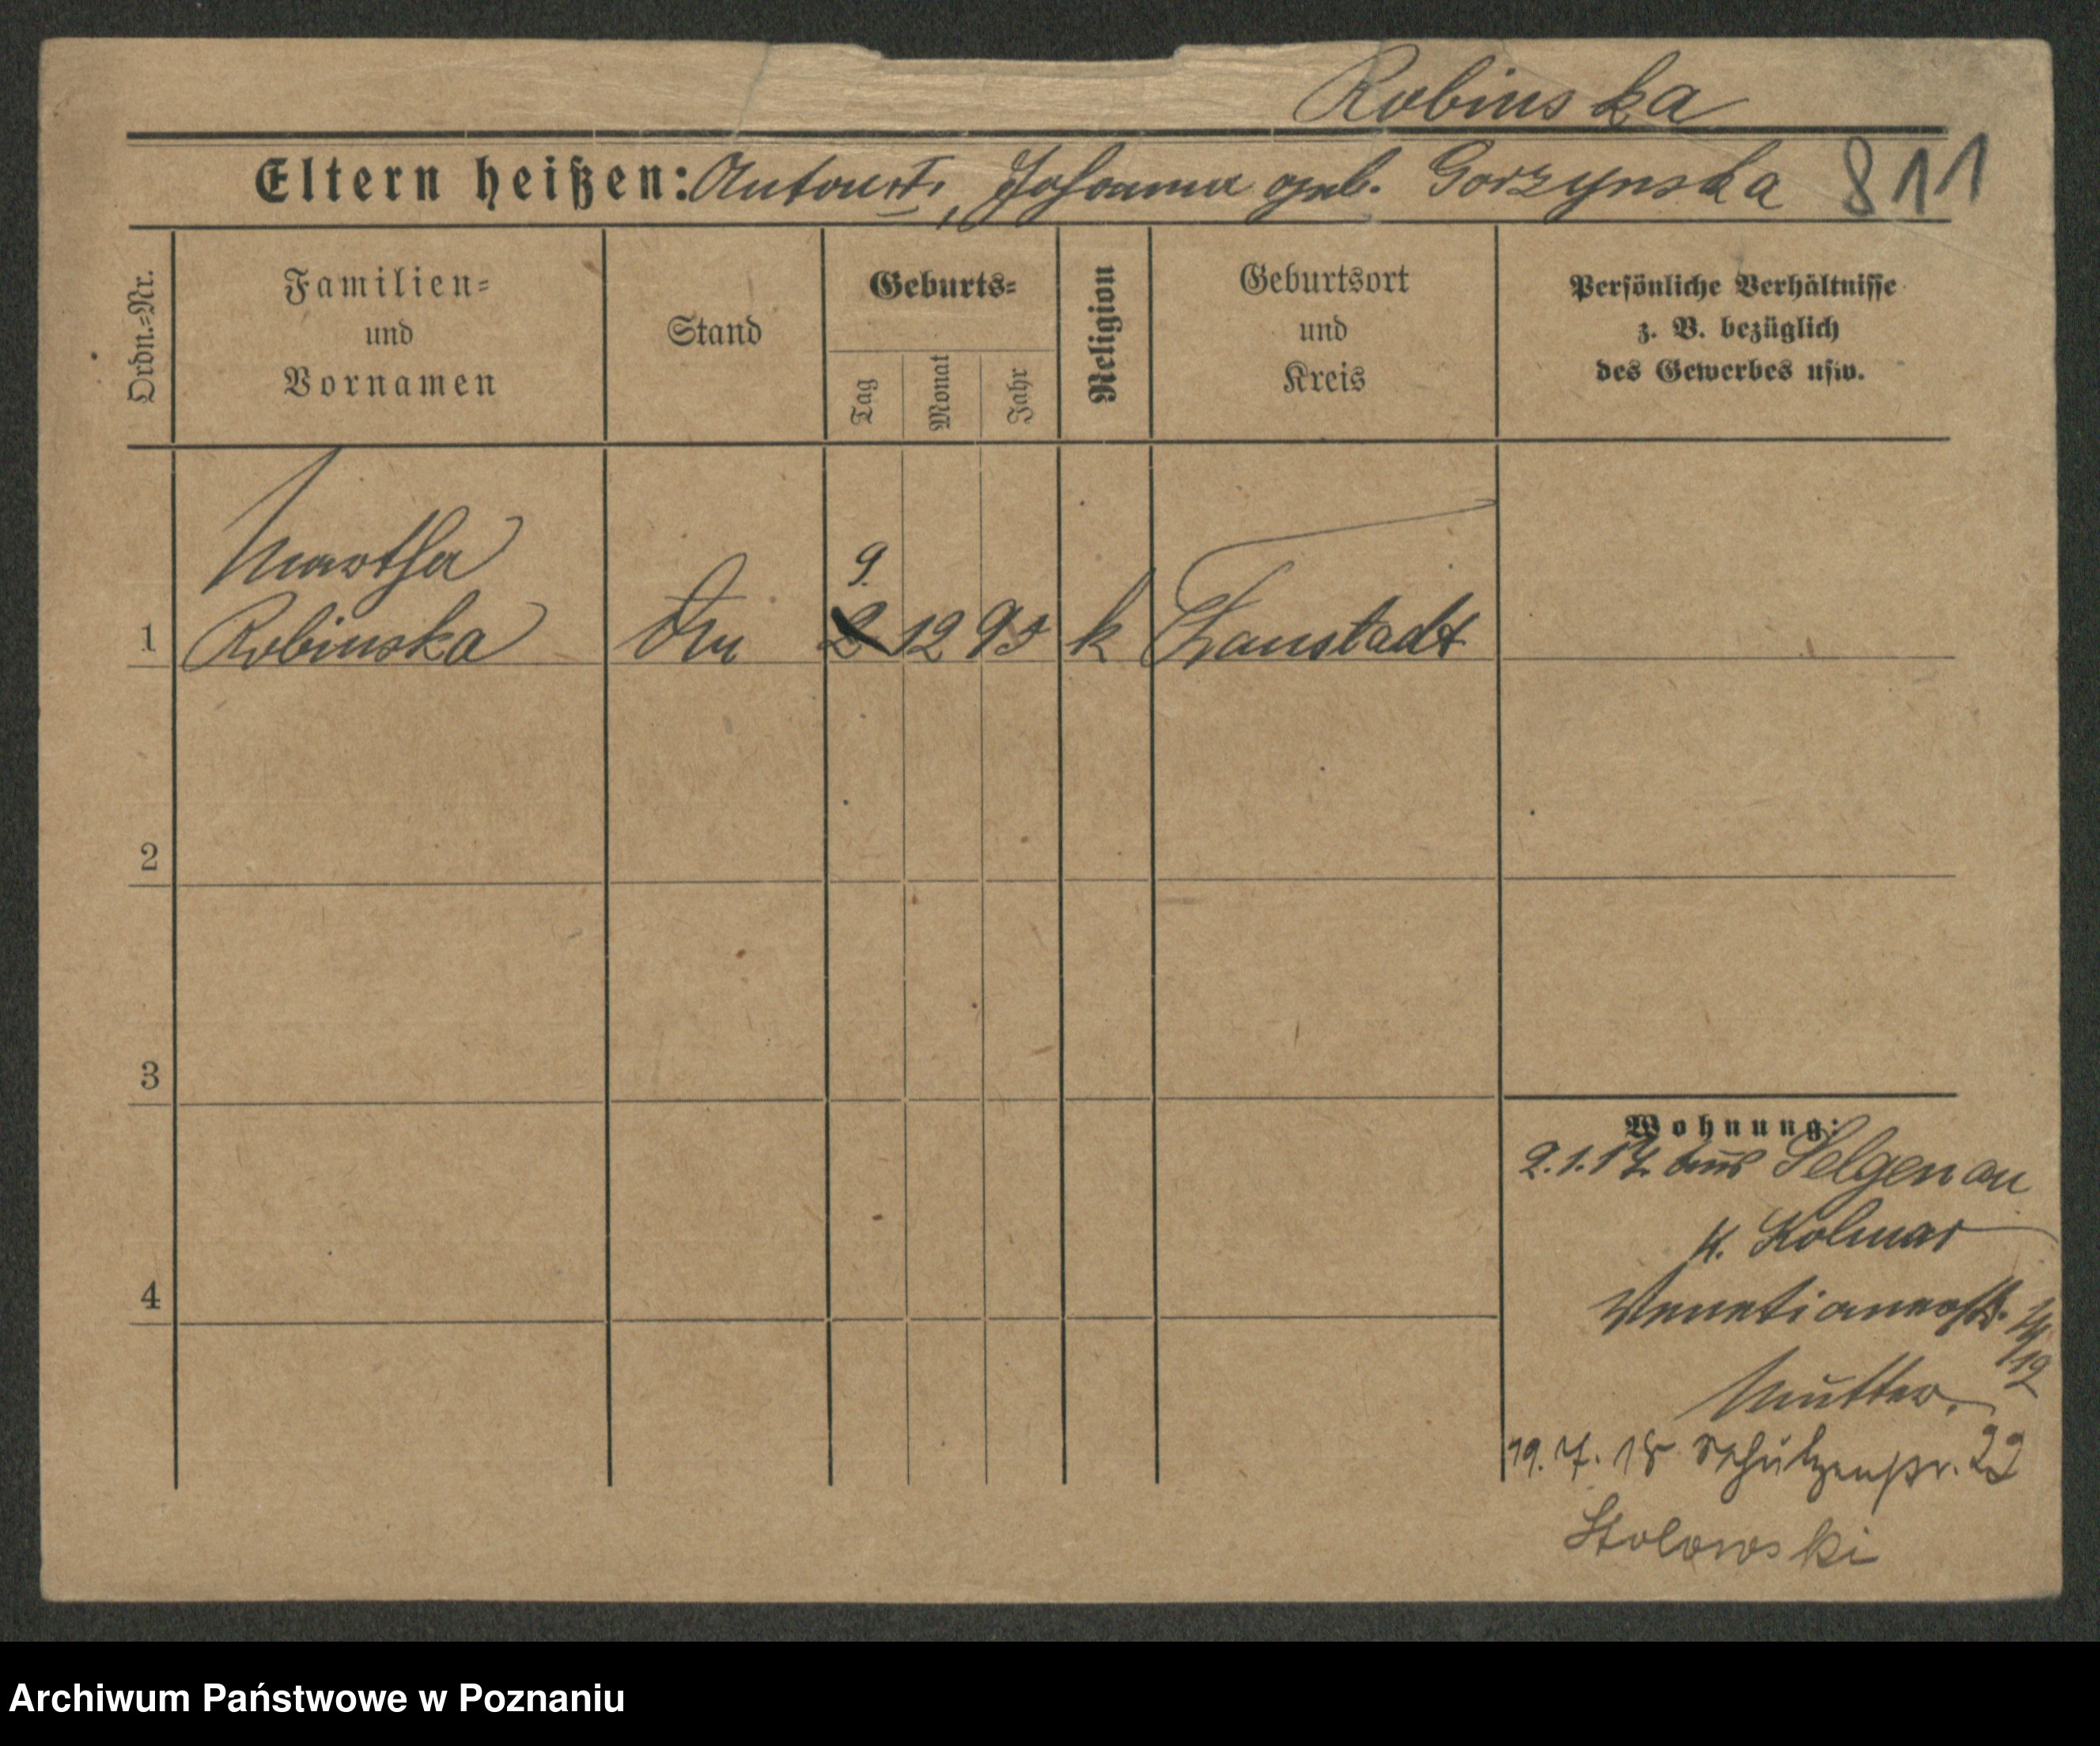 Robinska
Eltern heißen: Anton †, Johanna geb. Gorzynska 811
Ordn.=Nr.
Familien=
und
Vornamen
Stand
Geburts=
Tag
Monat
Jahr
Religion
Geburtsort
und
Kreis
Persönliche Verhältnisse
z. B. bezüglich
des Gewerbes usw.
Martha
9.
1 Robinska 2 12 95 k
2
3
4
Wohnung:
2.1.17. aus Selgenau
K. Kolmar
Venetianerstr.
12
Mutter.
19. 7. 18 Schützenstr. 22
Stolowski
Archiwum Państwowe w Poznaniu